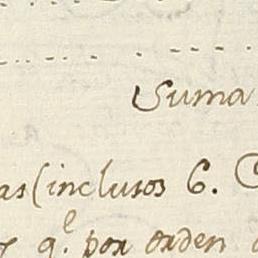 Suma
as (inclusos 6.
q.e por orden